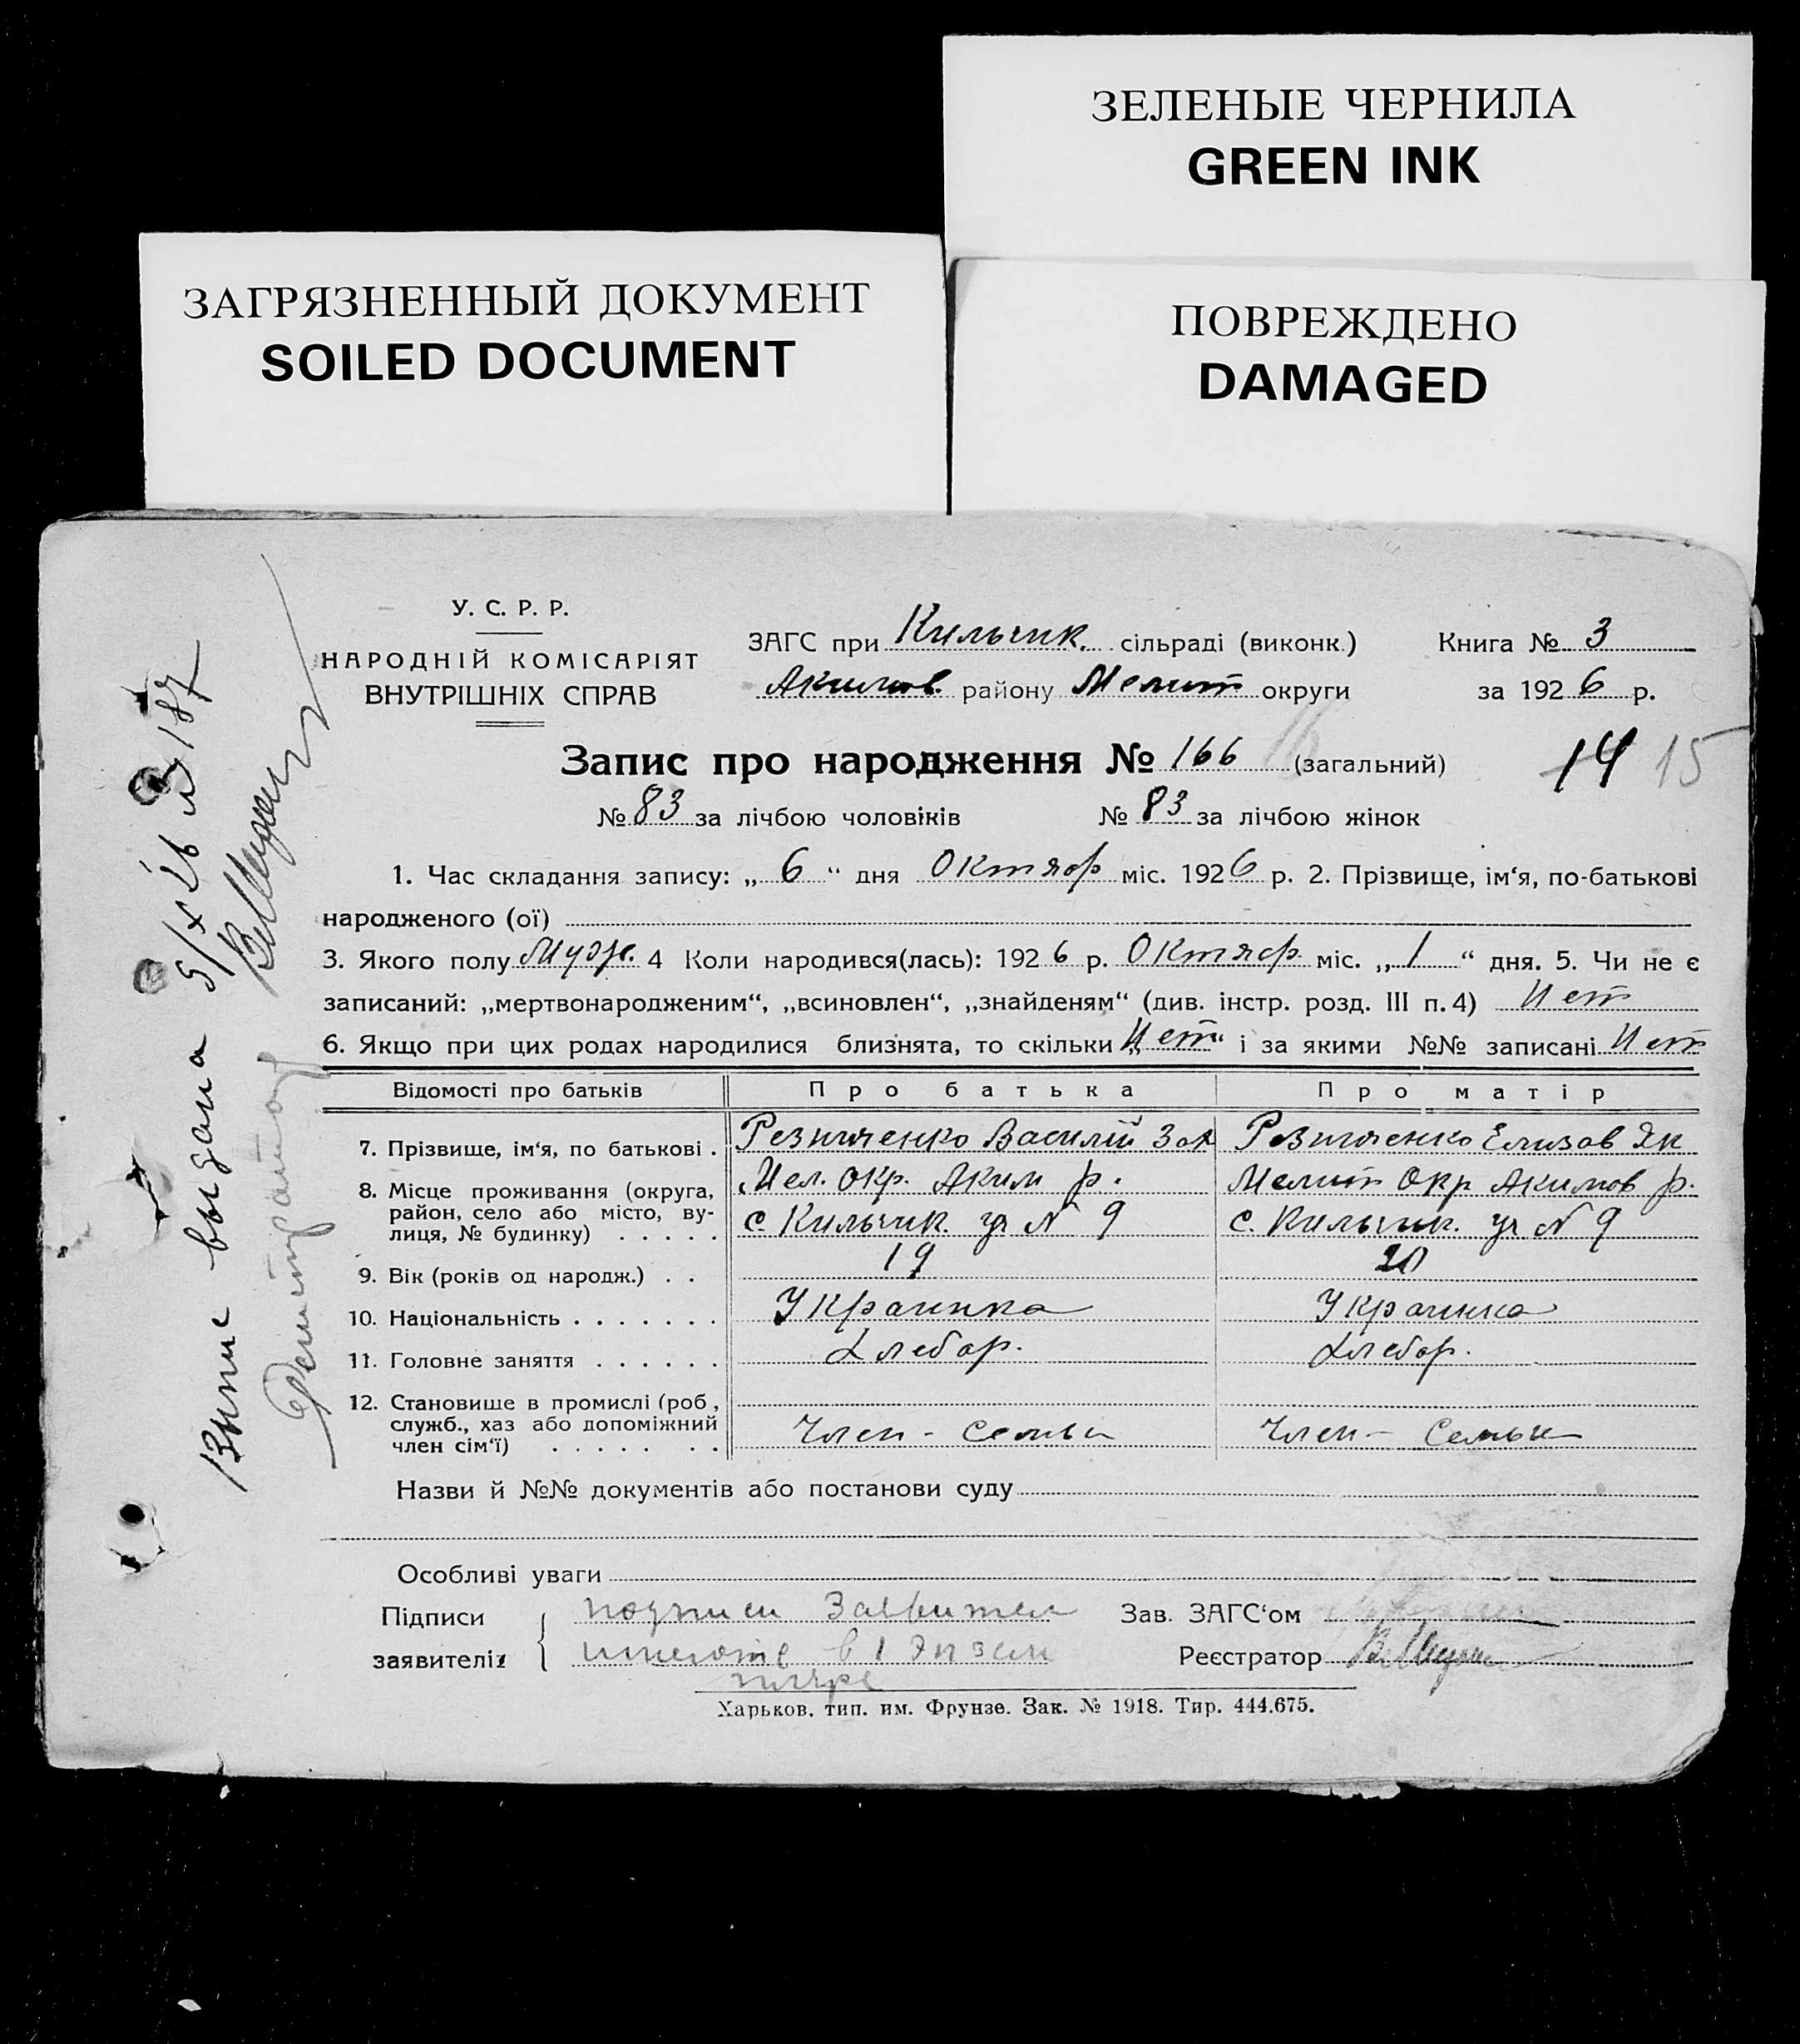 ЗЕЛЕНЫЕ ЧЕРНИЛА
GREEN INK
ЗАГРЯЗНЕННЫЙ ДОКУМЕНТ
SOILED DOCUMENT
ПОВРЕЖДЕНО
DAMAGED
У. С. Р. Р.
НАРОДНІЙ КОМІСАРІЯТ
ВНУТРІШНІХ СПРАВ
ЗАГС при Кильчик. сільраді (виконк.) Книга № 3
Акимов. району Мелит округи за 1926 р.
Запис про народження № 166 (загальний) 14 15
№ 83 за лічбою чоловіків № 83 за лічбою жінок
1. Час складання запису: „ 6 “ дня Октяб міс. 1926 р. 2. Прізвище, ім‘я, по-батькові
народженого (ої)
3. Якого полу Муж. 4 Коли народився(лась): 1926 р. Октяб. міс. „ 1 “ дня. 5. Чи не є
записаний: „мертвонародженим“, „всиновлен“, „знайденям“ (див. інстр. розд. III п. 4) Нет
6. Якщо при цих родах народилися близнята, то скільки „Нет“ і за якими №№ записані Нет
Відомості про батьків Про батька Про матір
7. Прізвище, ім‘я, по батькові . Резниченко Василій Зах Резниченко Елизов Як
8. Місце проживання (округа, Мел. Окр. Аким р. Мелит Окр Акимов р.
район, село або місто, ву-
лиця, № будинку) . . . . . с. Кильчик. ул N 9 с. Кильчик. ул N 9
9. Вік (років од народж.) . . 19 20
10. Національність . . . . . . . Украинка Украинка
11. Головне заняття . . . . . . Хлебор. Хлебор.
12. Становище в промислі (роб.,
служб., хаз або допоміжний
член сім‘ї) . . . . . . . Член - семьи Член - семьи
Назви й №№ документів або постанови суду
Особливі уваги
Підписи подписи Заявител Зав. ЗАГС‘ом
заявителів имеютс в 1 Экзем Реєстратор
пляре
Харьков, тип. им. Фрунзе. Зак. № 1918. Тир. 444.675.
Выпис выдана 5/X 26 № 187
Регистратор